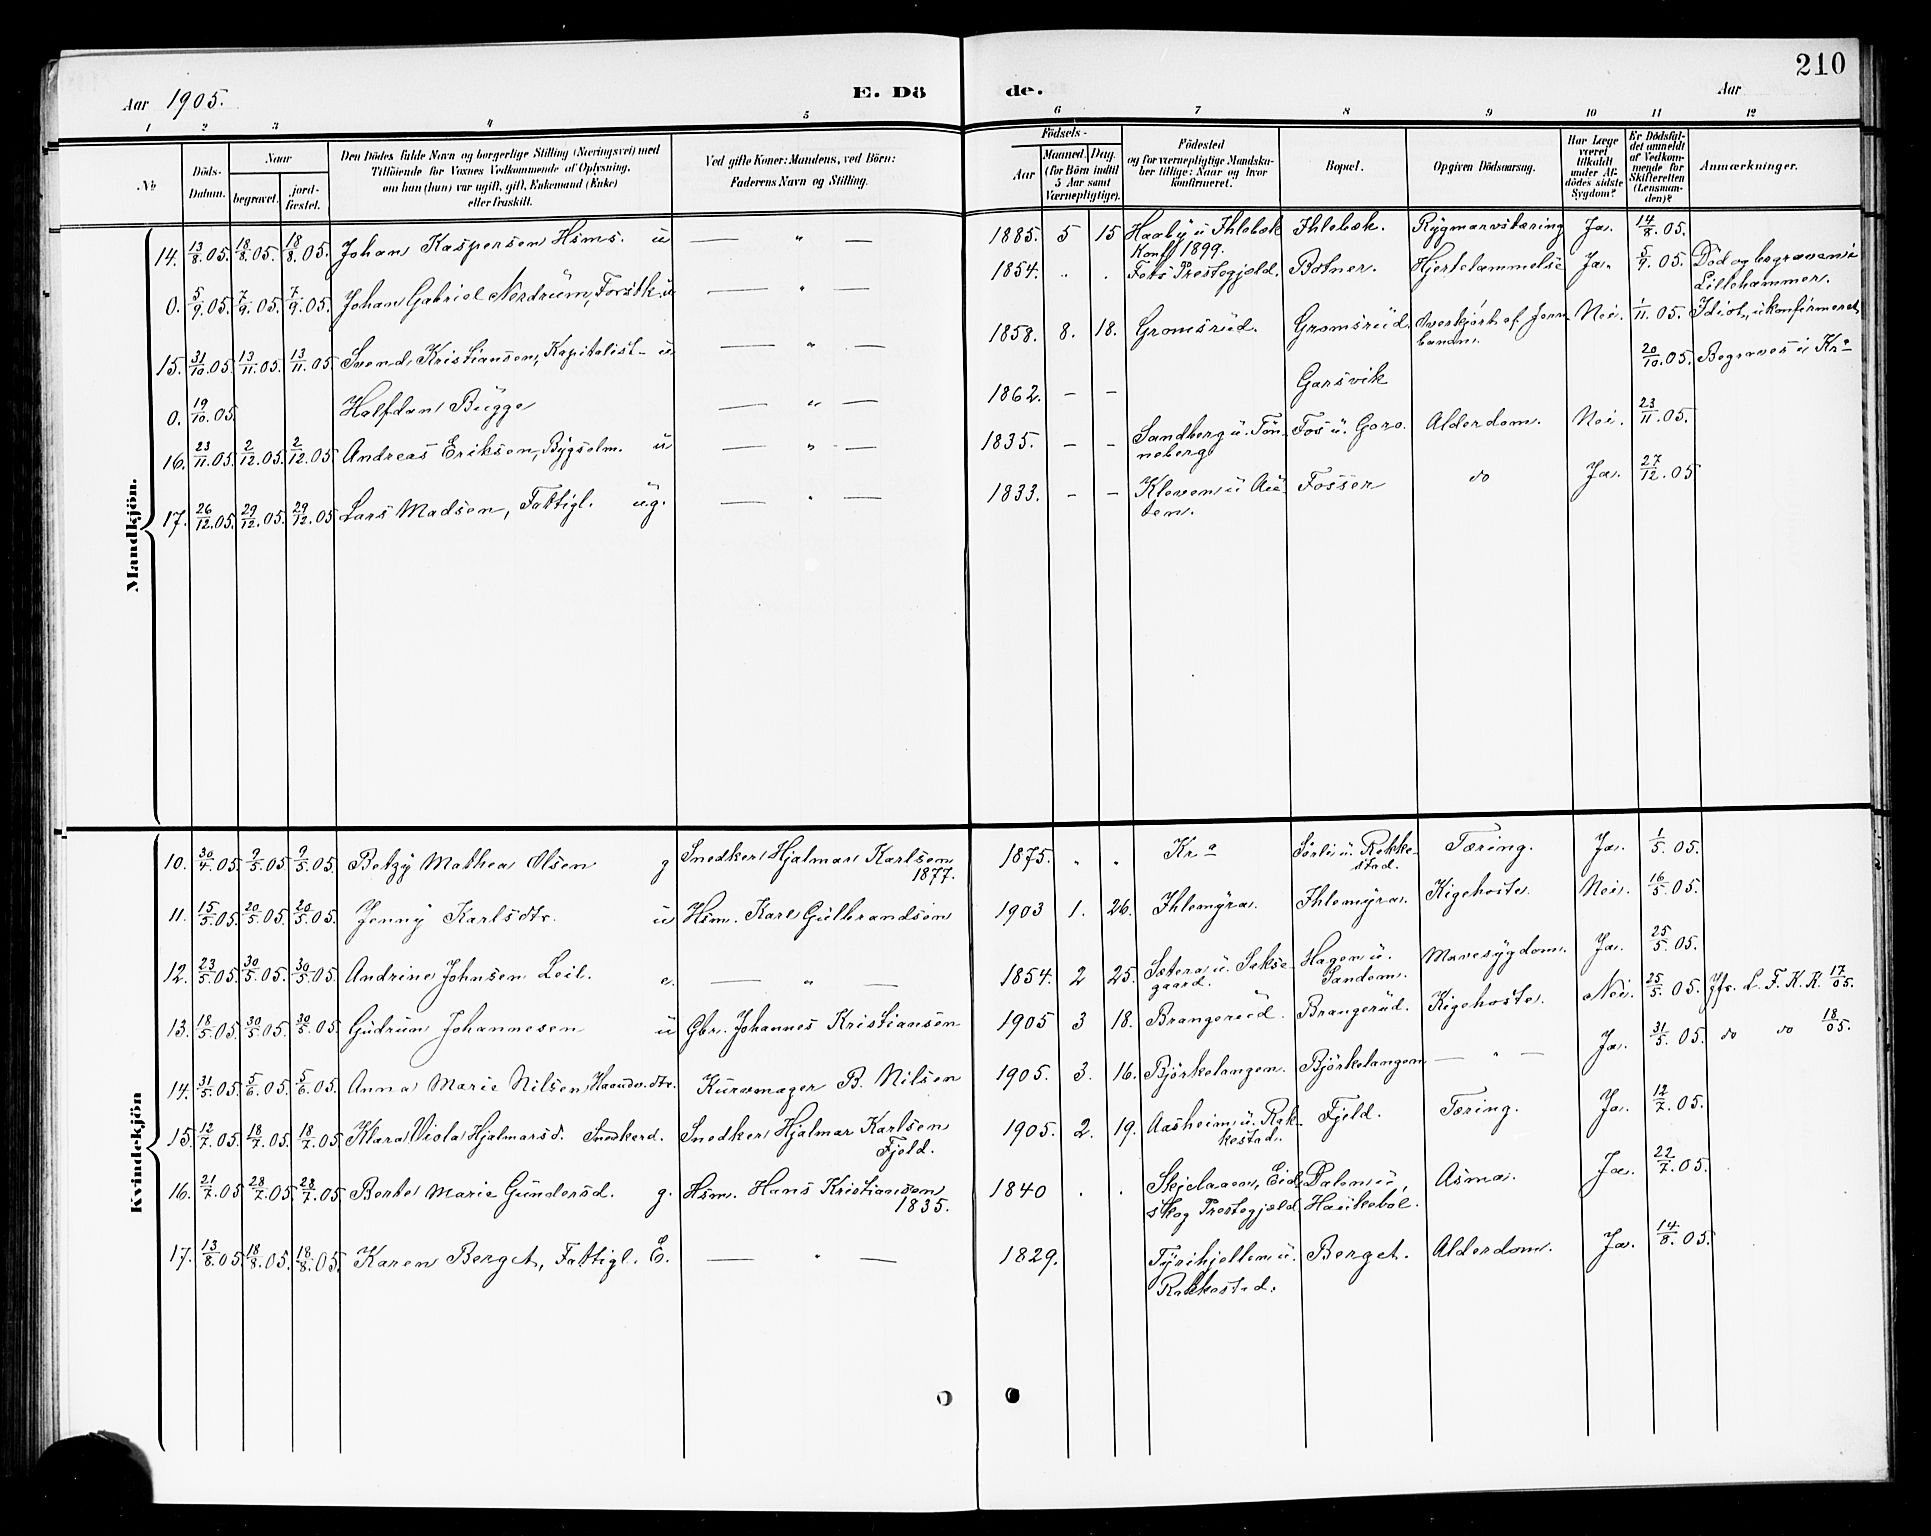 210
Aar 1905. E. Dö de. Aar
1 2 3 4 5 6 7 8 9 10 11 12
No. Döds-Datum. Naar begravet. jord-fæstet. Den Dödes fulde Navn og borgerlige Stilling (Næringsvei) med Tilföiende for Voxnes Vedkommende af Oplysning, om han (hun) var ugift, gift, Enkemand (Enke) eller fraskilt. Ved gifte Koner: Mandens, ved Börn: Faderens Navn og Stilling. Födsels- Aar Maaned. Dag. (for Börn indtil 5 Aar samt Værnepligtige). Födested og for værnepligtige Mandskaber tillige: Naar og hvor konfirmeret. Bopæl. Opgiven Dödsaarsag. Har Læge været tilkaldt under Afdödes sidste Sygdom? Er Dödsfaldet anmeldt af Vedkommende for Skifteretten (Lensmanden)? Anmærkninger.
Mandkjön.
14. 13/8.05. 18/8.05. 18/8.05. Johan Kaspersen Hsms. u — " — 1885. 5 15 Haaby u Ihlebæk Konf 1899. Ihlebæk. Rygmarvstæring Ja. 14/8.05.
0. 5/9.05. 7/9.05. 7/9.05. Johan Gabriel Nordrum, Forstk. u — " — 1854. " . Fets Prestegjeld. Botner. Hjertelammelse Ja. 5/9.05. Död og begraven i Lillehammer.
15. 31/10.05. 13/11.05. 13/11.05 Svend Kristiansen, Kapitalist u — " — 1858. 8. 18. Gromsrud. Gromsrud. Overkjört af Jernbanen. Nei. 1/11.05. Idiot, ukonfirmeret
0. 19/10.05. Halfdan Bugge — " — 1862. – – Garsvik 20/10.05. Begraves i Kra
16. 23/11.05. 2/12.05. 2/12.05 Andreas Eriksen, Bygselm. u — " — 1835. – – Sandberg u. Tönneberg Fos u. Garo. Alderdom. Nei. 23/11.05.
17. 26/12.05. 29/12.05. 29/12.05 Lars Madsen, Fattigl. ug. — " — 1833. – – Kleven u Auten. Fosser do Ja. 27/12.05
Kvindekjön
10. 30/4.05. 9/5.05. 9/5.05. Betzy Mathea Olsen g Snedker Hjalmar Karlsen 1877. 1875. " " Kra Sörli u. Rakkestad. Tæring. Ja. 1/5.05.
11. 15/5.05. 20/5.05. 20/5.05. Jenny Karlsdtr. u Hsm. Karl Gulbrandsen 1903 1. 26. Ihlemyra. Ihlemyra. Kigehoste. Nei. 16/5.05.
12. 23/5.05. 30/5.05. 30/5.05. Andrine Johnsen Leil. e. — " — 1854. 2 25. Sætera u. Saksegaard. Hagen u. Sandem. Mavesygdom. Ja. 25/5.05.
13. 18/5.05. 30/5.05. 30/5.05. Gudrun Johannesen u Gbr. Johannes Kristiansen 1905 3 18. Brangerud. Brangerud. Kigehoste. Nei. 25/5.05. Jfr. L. F. K. R. 17/05.
14. 31/5.05. 5/6.05. 5/6.05. Anna Marie Nilsen Haandv.dtr. Kurvmager B. Nilsen 1905. 3. 16. Björkelangen. Björkelangen — " — Ja. 31/5.05. do do 18/05.
15. 12/7.05. 18/7.05. 18/7.05. Klara Viola Hjalmarsd. Snedkerd. Snedker Hjalmar Karlsen Fjeld. 1905. 2. 19. Aasheim u. Rakkestad. Fjeld. Tæring. Ja. 12/7.05.
16. 21/7.05 28/7.05. 28/7.05 Berte Marie Gundersd. g. Hsm. Hans Kristiansen 1835. 1840 . . Eidskog Prestegjeld Dalen u, Haukeböl. Asma. Ja. 22/7.05.
17. 13/8.05. 18/8.05. 18/8.05. Karen Berget, Fattigl. E. — " — 1829. Tyrihjellen u. Rakkestad. Berget. Alderdom. Ja. 14/8.05.